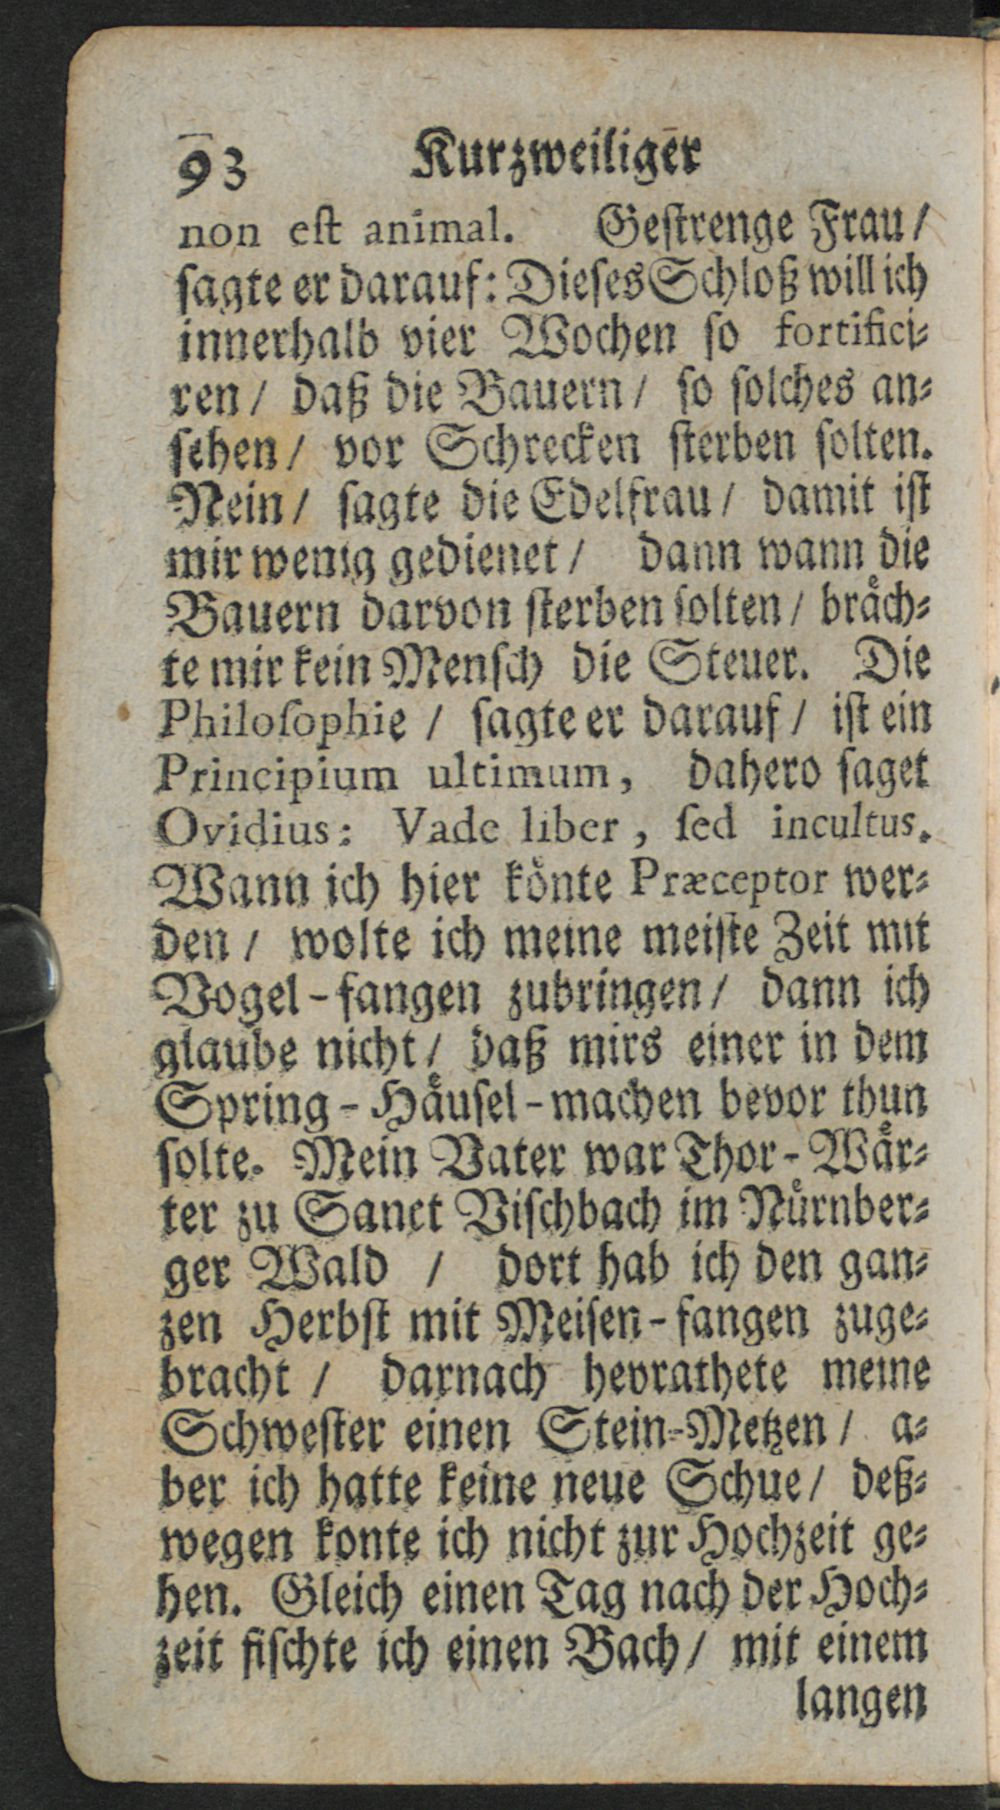 93 Kurzweiliger
non est animal. Gestrenge Frau /
sagte er darauf: Dieses Schloß will ich
innerhalb vier Wochen so fortifici-
ren / daß die Bauern / so solches an-
sehen / vor Schrecken sterben solten.
Nein / sagte die Edelfrau / damit ist
mir wenig gedienet / dann wann die
Bauern darvon sterben solten / bräch-
te mir kein Mensch die Steuer. Die
Philosophie / sagte er darauf / ist ein
Principium ultimum, dahero saget
Ovidius: Vade liber, sed incultus.
Wann ich hier könte Præceptor wer-
den / wolte ich meine meiste Zeit mit
Vogel-fangen zubringen / dann ich
glaube nicht / daß mirs einer in dem
Spring-Häusel-machen bevor thun
solte. Mein Vater war Thor-Wär-
ter zu Sanct Vischbach im Nürnber-
ger Wald / dort hab ich den gan-
zen Herbst mit Meisen-fangen zuge-
bracht / darnach heyrathete meine
Schwester einen Stein-Metzen / a-
ber ich hatte keine neue Schue / deß-
wegen konte ich nicht zur Hochzeit ge-
hen. Gleich einen Tag nach der Hoch-
zeit fischte ich einen Bach / mit einem
langen